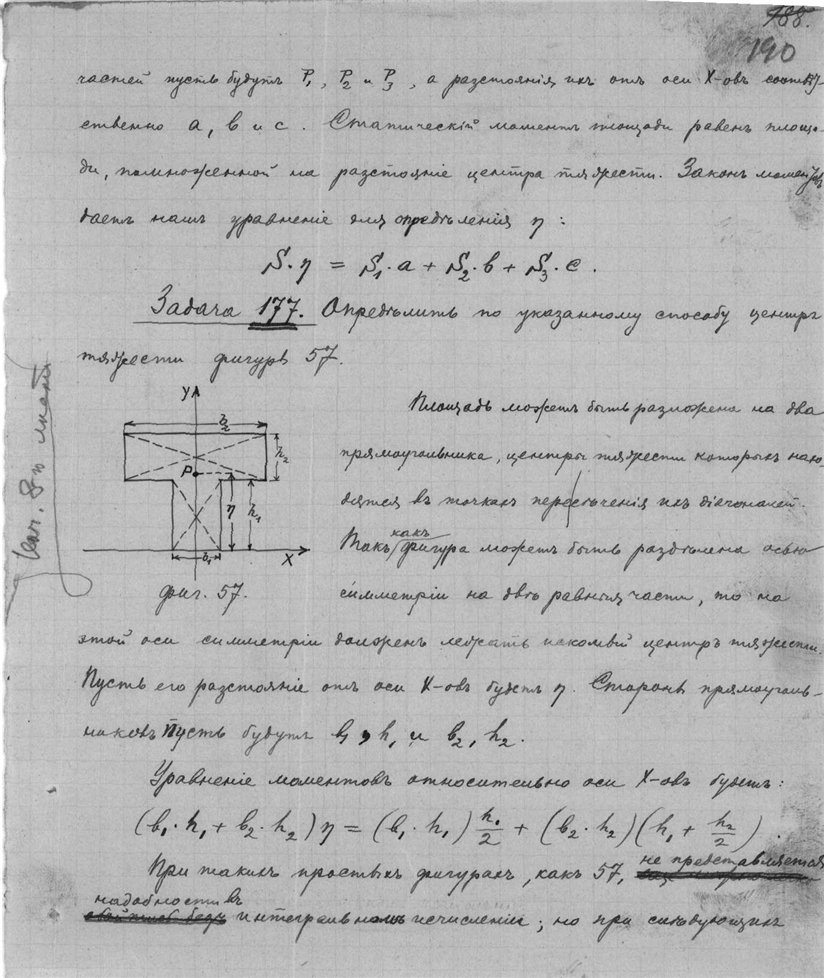 188.
190
частей пусть будутъ P₁, P₂ и P₃, а разстоянія ихъ отъ оси X-овъ соотвѣт-
ственно а, в и с. Статическій моментъ площади равенъ площа-
ди, помноженной на разстояніе центра тяжести. Законъ моментовъ
даетъ намъ уравненіе для опредѣленія η:
S·η = S₁·a + S₂·b + S₃·c.
Задача 177. Опредѣлить по указанному способу центръ
тяжести фигуры 57.
Y
b₂
h₂
P
η
h₁
b₁
X
фиг. 57.
Площадь можетъ быть разложена на два
прямоугольника, центры тяжести которыхъ нахо-
дятся въ точкахъ пересѣченія ихъ діагоналей.
Такъ какъ фигура можетъ быть раздѣлена осью
симметріи на двѣ равныя части, то на
этой оси симметріи долженъ лежать искомый центръ тяжести.
Пусть его разстояніе отъ оси X-овъ будетъ η. Стороны прямоуголь-
никовъ пусть будутъ b₁, h₁ и b₂, h₂.
Уравненіе моментовъ относительно оси X-овъ будетъ:
(b₁·h₁ + b₂·h₂)η = (b₁·h₁) h₁/2 + (b₂·h₂)(h₁ + h₂/2).
При такихъ простыхъ фигурахъ, какъ 57, не представляется
надобности въ интегральномъ исчисленіи; но при слѣдующихъ